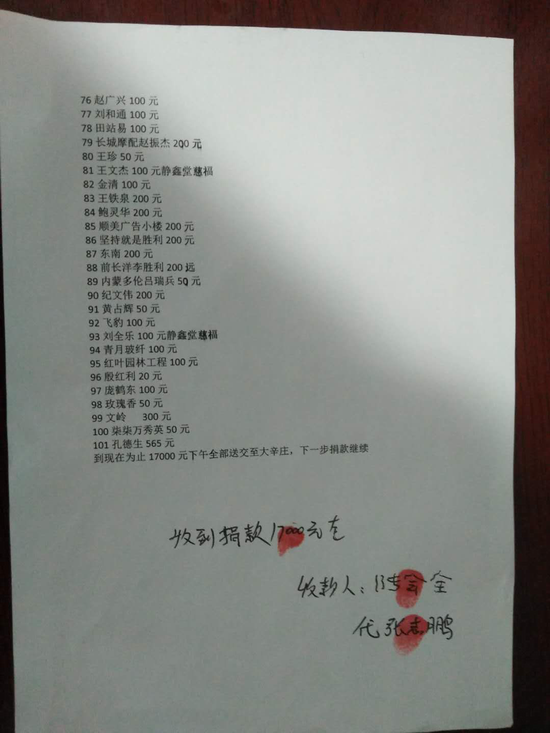 76 赵广兴 100 元
77 刘和通 100 元
78 田站易 100 元
79 长城摩配赵振杰 200 元
80 王珍 50 元
81 王文杰 100 元静鑫堂慈福
82 金清 100 元
83 王铁泉 200 元
84 鲍灵华 200 元
85 顺美广告小楼 200 元
86 坚持就是胜利 200 元
87 东南 200 元
88 前长洋李胜利 200 远
89 内蒙多伦吕瑞兵 50 元
90 纪文伟 200 元
91 黄占辉 50 元
92 飞豹 100 元
93 刘全乐 100 元静鑫堂慈福
94 青月玻纤 100 元
95 红叶园林工程 100 元
96 殷红利 20 元
97 庞鹤东 100 元
98 玫瑰香 50 元
99 文岭 300 元
100 柒柒万秀英 50 元
101 孔德生 565 元
到现在为止 17000 元下午全部送交至大辛庄，下一步捐款继续
收到捐款17000元
收款人：会全
代 张志鹏